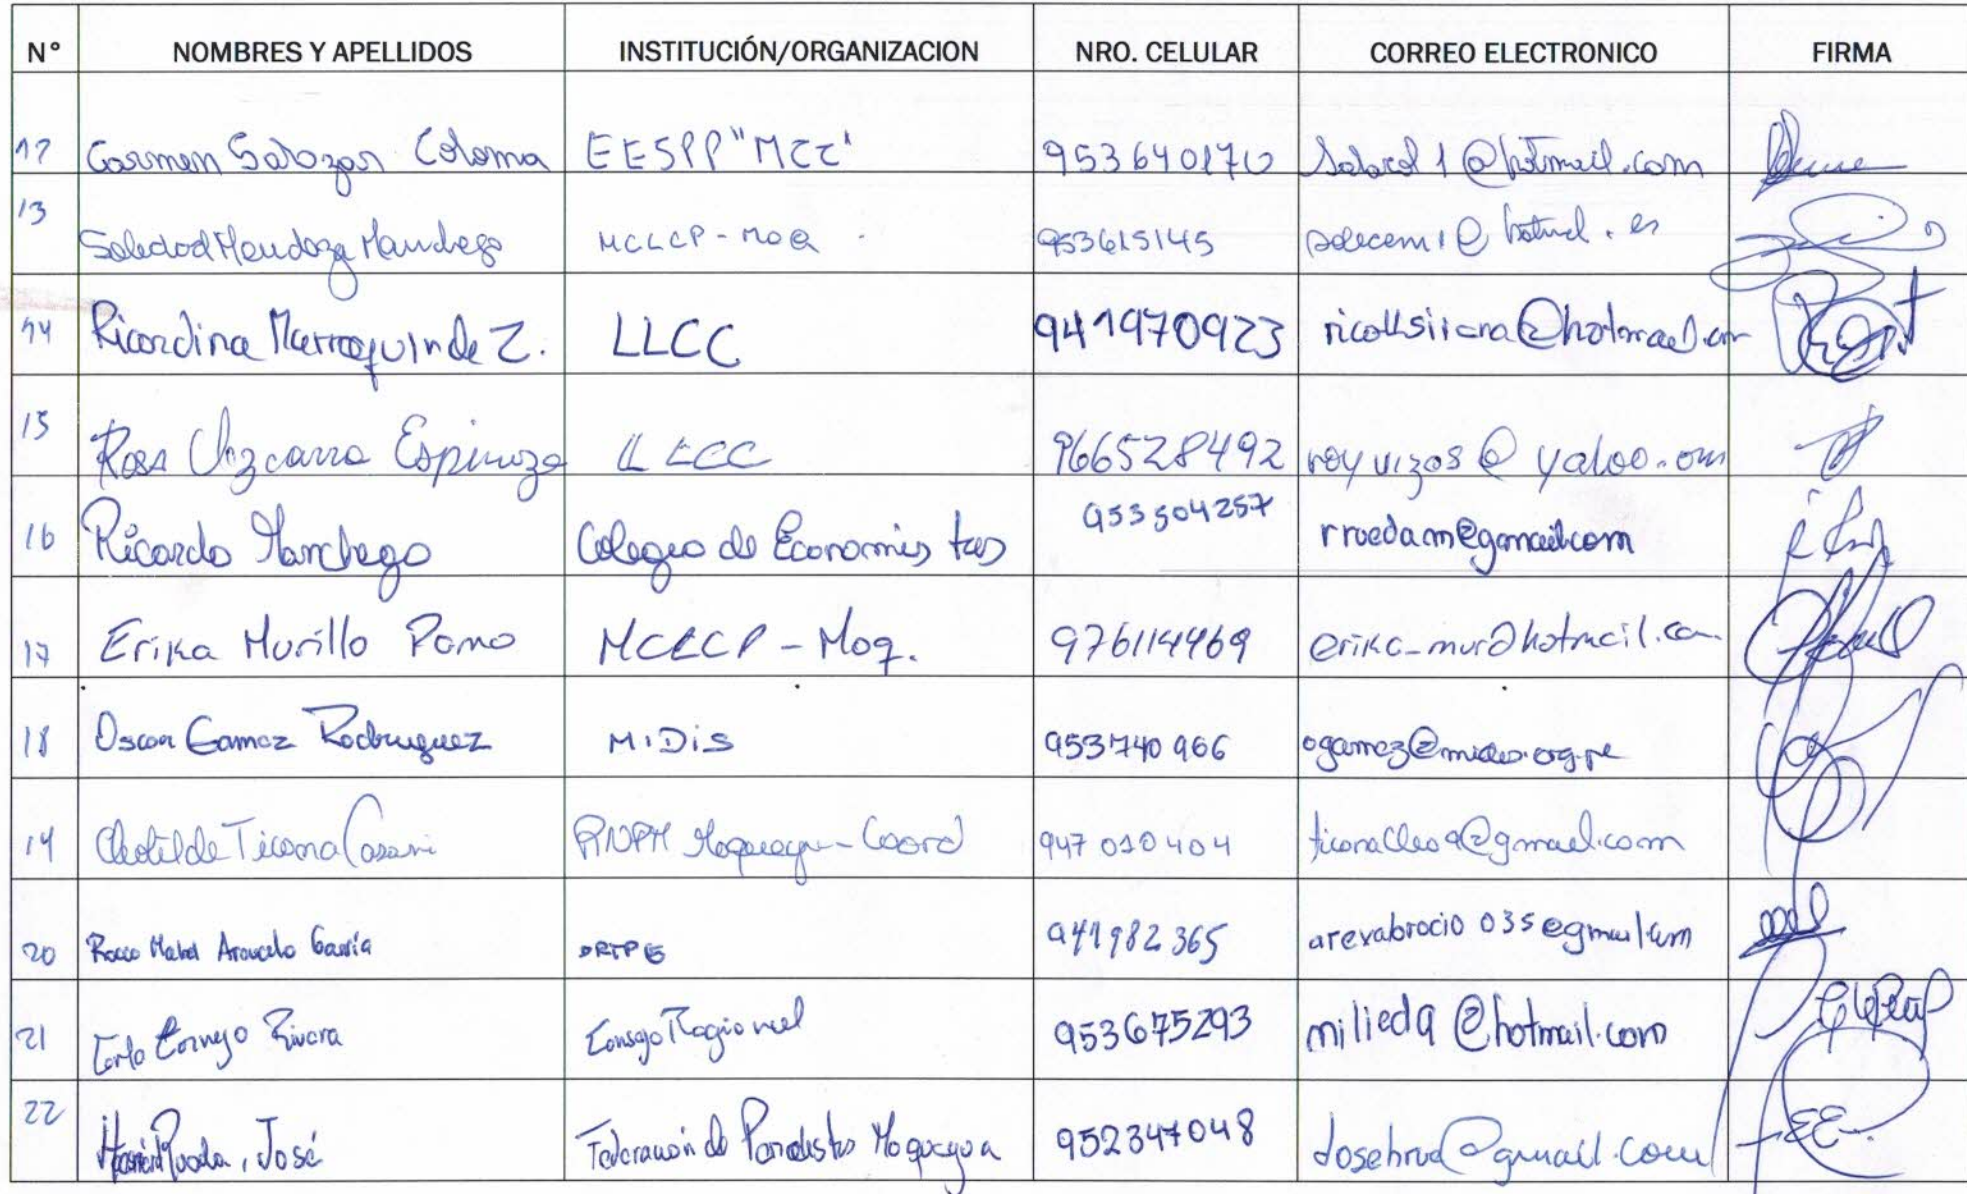 N° NOMBRES Y APELLIDOS INSTITUCIÓN/ORGANIZACION NRO. CELULAR CORREO ELECTRONICO FIRMA
12 Carmen Salazar Coloma EESPP "MCC" 953640170 @hotmail.com
13 Soledad Mendoza Manchego MCLCP-MOQ 953615145 solecem1@hotmail.es
14 Ricardina Marroquin de Z. LLCC 941970923
15 Rosa Vizcarra Espinoza LLCC 966528492 royvizos@yahoo.com
16 Ricardo Manchego Colegio de Economistas 953504257 rruedam@gmail.com
17 Erika Murillo Pomo MCLCP-Moq. 976114469 erika_mur@hotmail.com
18 Oscar Gamez Rodriguez MIDIS 953740966
19 Clotilde Ticona Moquegua-Coord 947010404 ticonacleo9@gmail.com
20 Arevalo García DRTPE 941982365 arevabrocio035@gmail.com
21 Cornejo Rivera Consejo Regional 953675293 milied9@hotmail.com
22 Rueda, José Federación de Periodistas Moquegua 952347048 @gmail.com